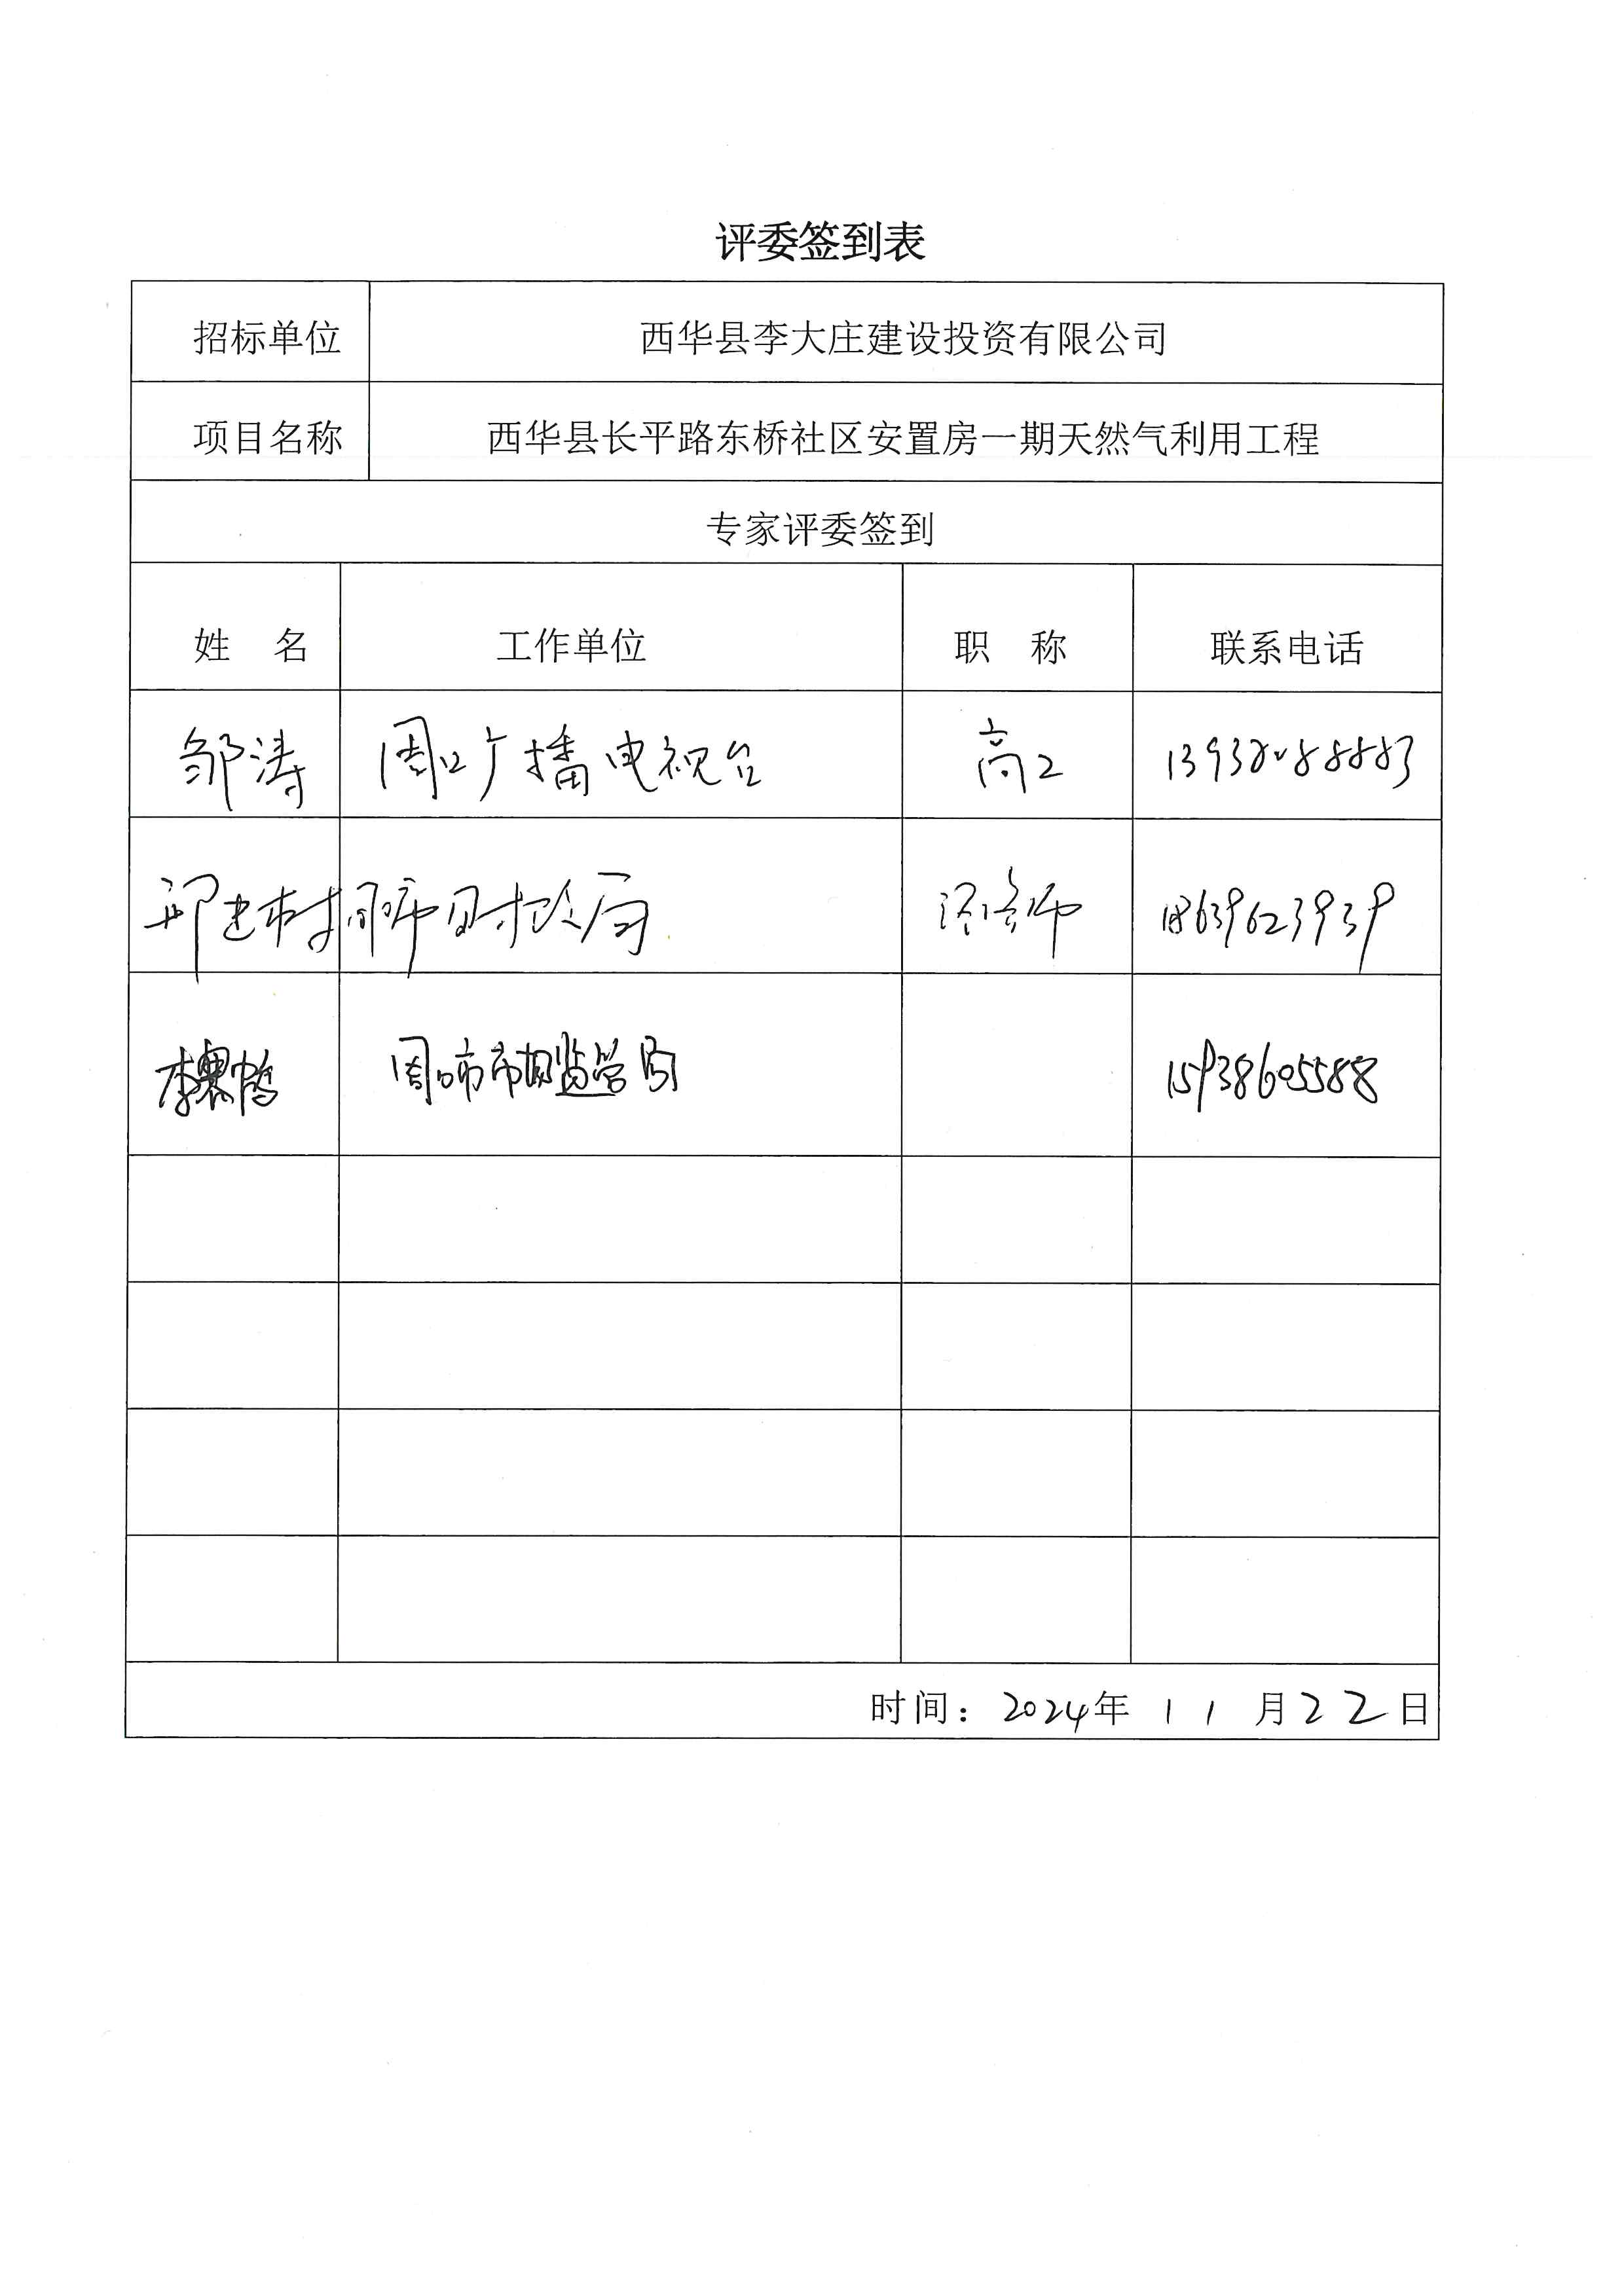 评委签到表
招标单位 西华县李大庄建设投资有限公司
项目名称 西华县长平路东桥社区安置房一期天然气利用工程
专家评委签到
姓 名 工作单位 职 称 联系电话
邹涛 周口广播电视台 高工
邢建村 周口市 局 18639623939
李 鹤 周口市市场监管局 15938605588
时间：2024年 11 月22日